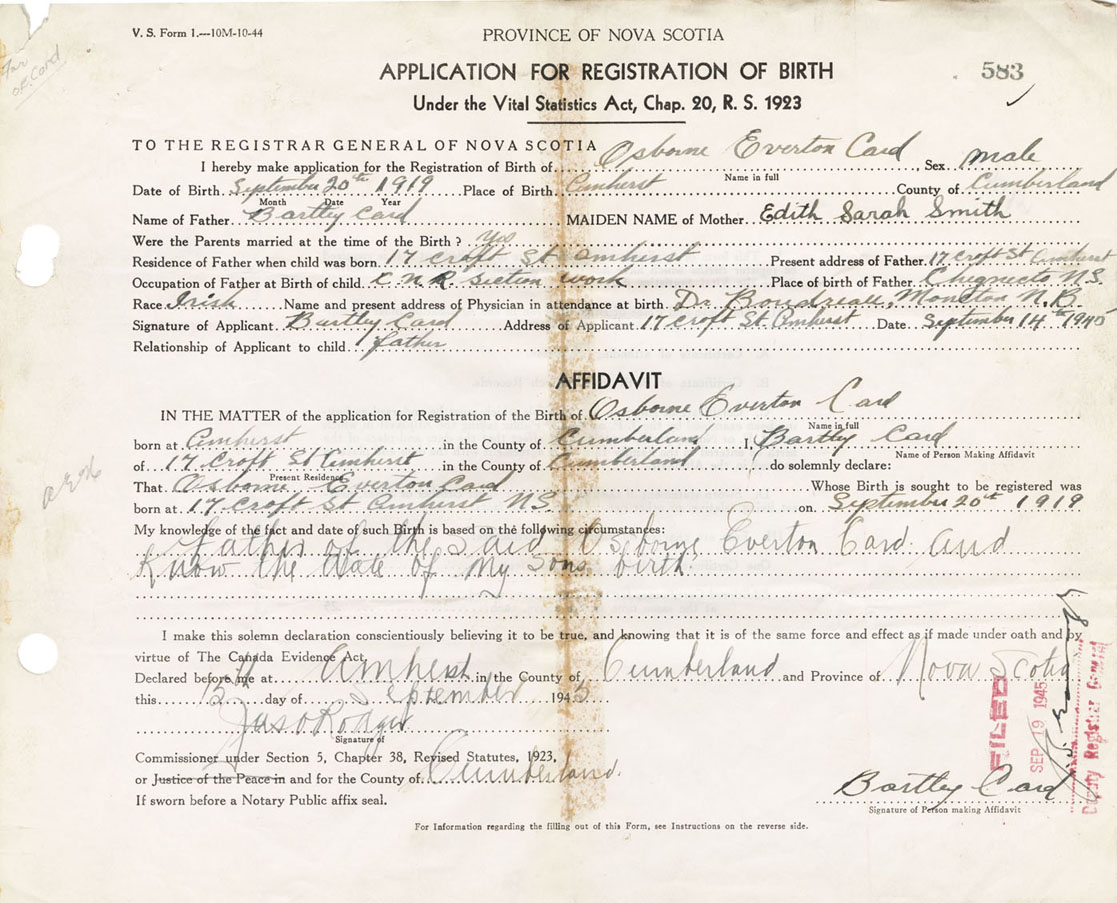 V. S. Form 1.—10M-10-44
PROVINCE OF NOVA SCOTIA
583
APPLICATION FOR REGISTRATION OF BIRTH
Under the Vital Statistics Act, Chap. 20, R. S. 1923
TO THE REGISTRAR GENERAL OF NOVA SCOTIA
I hereby make application for the Registration of Birth of Osborne Everton Card, Sex male
Name in full
Date of Birth September 20th 1919 Place of Birth Amherst County of Cumberland
Month Date Year
Name of Father Bartley Card MAIDEN NAME of Mother Edith Sarah Smith
Were the Parents married at the time of the Birth? Yes
Residence of Father when child was born 17 Croft St Amherst Present address of Father 17 Croft St Amherst
Occupation of Father at Birth of child C.N.R. Section work Place of birth of Father Chignecto N.S.
Race Irish Name and present address of Physician in attendance at birth Dr. Boudreau, Moncton N.B.
Signature of Applicant Bartley Card Address of Applicant 17 Croft St Amherst Date September 14th 1945
Relationship of Applicant to child father
AFFIDAVIT
IN THE MATTER of the application for Registration of the Birth of Osborne Everton Card
Name in full
born at Amherst in the County of Cumberland I, Bartley Card
Name of Person Making Affidavit
of 17 Croft St Amherst in the County of Cumberland do solemnly declare:
Present Residence
That Osborne Everton Card Whose Birth is sought to be registered was
born at 17 Croft St Amherst NS on September 20th 1919
My knowledge of the fact and date of such Birth is based on the following circumstances:
father of the said Osborne Everton Card and
Know the date of my sons birth
I make this solemn declaration conscientiously believing it to be true, and knowing that it is of the same force and effect as if made under oath and by
virtue of The Canada Evidence Act
Declared before me at Amherst in the County of Cumberland and Province of Nova Scotia
this 15th day of September 1945
Signature of
Commissioner under Section 5, Chapter 38, Revised Statutes, 1923,
or Justice of the Peace in and for the County of Cumberland
If sworn before a Notary Public affix seal.
FILED
SEP 19 1945
Deputy Registrar General
Bartley Card
Signature of Person making Affidavit
For Information regarding the filling out of this Form, see Instructions on the reverse side.